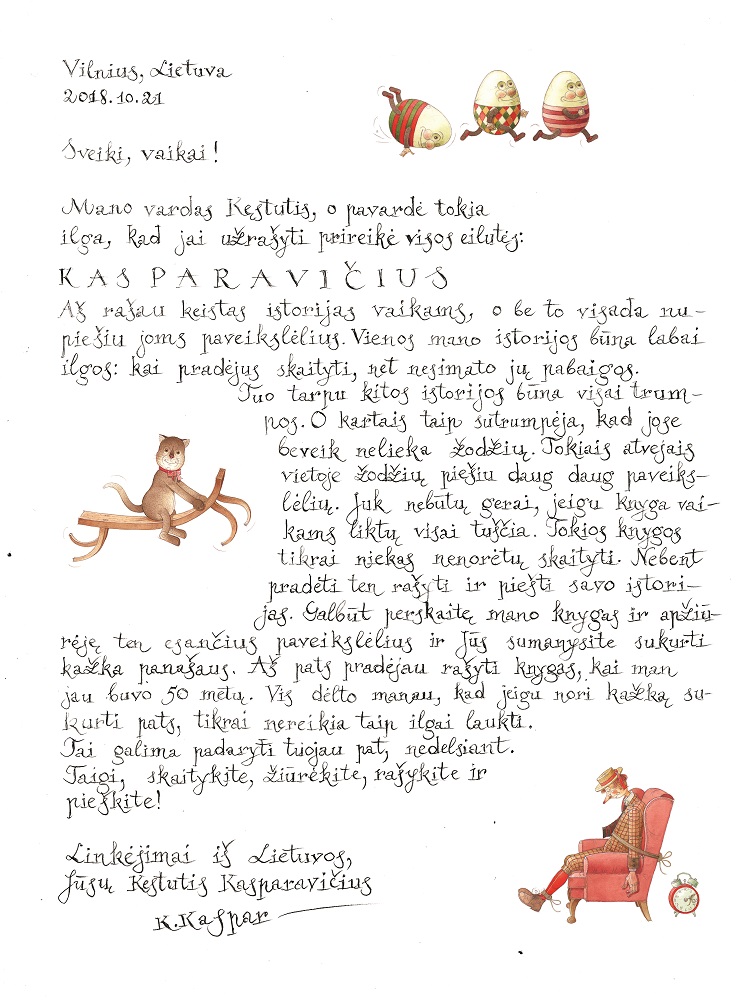 Vilnius, Lietuva
2018.10.21
Sveiki, vaikai!
Mano vardas Kęstutis, o pavardė tokia
ilga, kad jai užrašyti prireikė visos eilutės:
KASPARAVIČIUS
Aš rašau keistas istorijas vaikams, o be to visada nu-
piešiu joms paveikslėlius. Vienos mano istorijos būna labai
ilgos: kai pradėjus skaityti, net nesimato jų pabaigos.
Tuo tarpu kitos istorijos būna visai trum-
pos. O kartais taip sutrumpėja, kad jose
beveik nelieka žodžių. Tokiais atvejais
vietoje žodžių piešiu daug daug paveiks-
lėlių. Juk nebūtų gerai, jeigu knyga vai-
kams liktų visai tuščia. Tokios knygos
tikrai niekas nenorėtų skaityti. Nebent
pradėti ten rašyti ir piešti savo istori-
jas. Galbūt perskaitę mano knygas ir apžiū-
rėję ten esančius paveikslėlius ir Jūs sumanysite sukurti
kažką panašaus. Aš pats pradėjau rašyti knygas, kai man
jau buvo 50 metų. Vis dėlto manau, kad jeigu nori kažką su-
kurti pats, tikrai nereikia taip ilgai laukti.
Tai galima padaryti tuojau pat, nedelsiant.
Taigi, skaitykite, žiūrėkite, rašykite ir
pieškite!
Linkėjimai iš Lietuvos,
Jūsų Kęstutis Kasparavičius
K. Kaspar